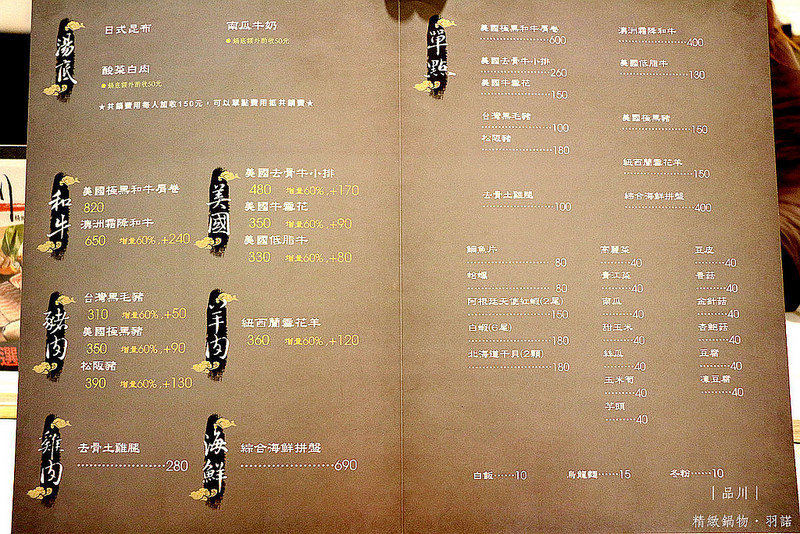 湯底
日式昆布
南瓜牛奶
●鍋底額外酌收50元
酸菜白肉
●鍋底額外酌收50元
★共鍋費用每人加收150元，可以單點費用抵共鍋費★
和牛
美國極黑和牛肩卷
820
澳洲霜降和牛
650 增量60%,+240
美國
美國去骨牛小排
480 增量60%,+170
美國牛雪花
350 增量60%,+90
美國低脂牛
330 增量60%,+80
豬肉
台灣黑毛豬
310 增量60%,+50
美國極黑豬
350 增量60%,+90
松阪豬
390 增量60%,+130
羊肉
紐西蘭雪花羊
360 增量60%,+120
雞肉
去骨土雞腿
280
海鮮
綜合海鮮拼盤
690
單點
美國極黑和牛肩卷
600
澳洲霜降和牛
400
美國去骨牛小排
260
美國低脂牛
130
美國牛雪花
150
台灣黑毛豬
100
美國極黑豬
150
松阪豬
180
紐西蘭雪花羊
150
去骨土雞腿
100
綜合海鮮拼盤
400
鯛魚片
80
蛤蠣
80
阿根廷天使紅蝦(2尾)
150
白蝦(6尾)
180
北海道干貝(2顆)
180
高麗菜
40
青江菜
40
南瓜
40
甜玉米
40
絲瓜
40
玉米筍
40
芋頭
40
豆皮
40
香菇
40
金針菇
40
杏鮑菇
40
豆腐
40
凍豆腐
40
白飯……10
烏龍麵……15
冬粉……10
｜品川｜
精緻鍋物・羽諾
選